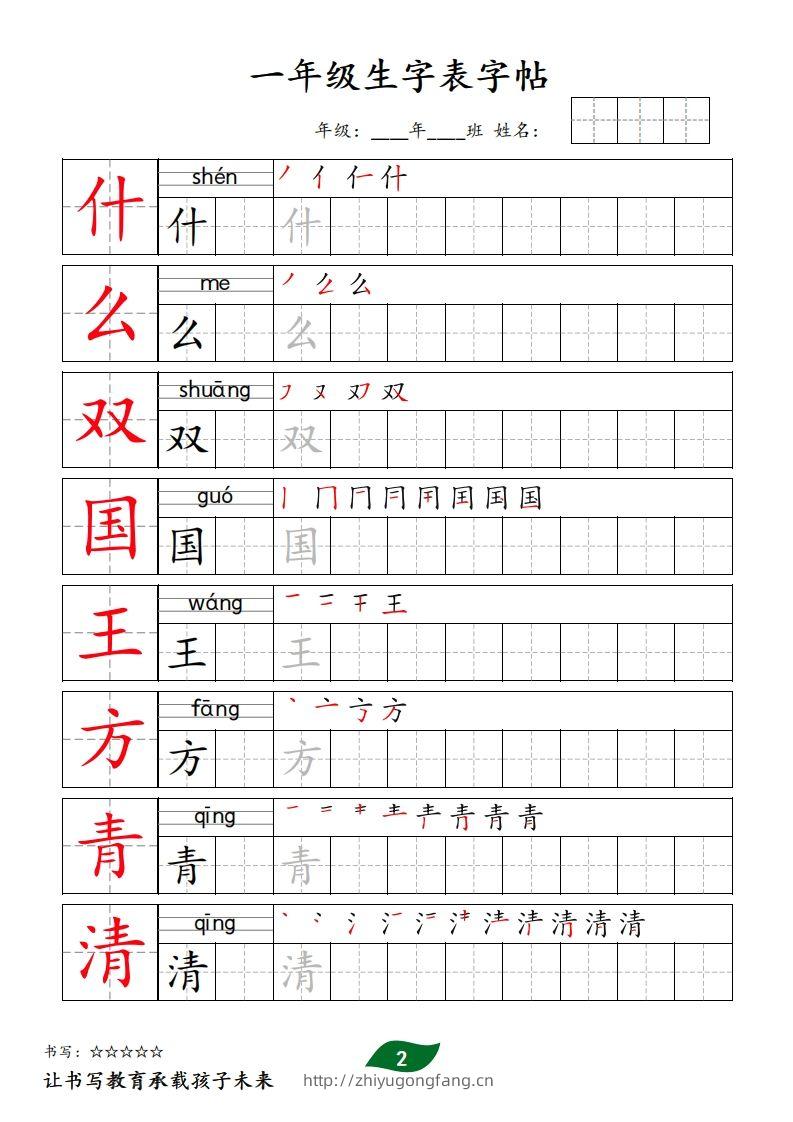 一年级生字表字帖
年级：____年____班 姓名：
什 shén 丿 亻 仁 什
什 什
么 me 丿 么 么
么 么
双 shuāng ㇇ 又 双 双
双 双
国 guó 丨 冂 冂 冃 国 国 国 国
国 国
王 wáng 一 二 干 王
王 王
方 fāng 丶 亠 方 方
方 方
青 qīng 一 二 青 青 青 青 青 青
青 青
清 qīng 丶 冫 氵 清 清 清 清 清 清 清 清
清 清
书写：☆☆☆☆☆
2
让书写教育承载孩子未来
http://zhiyugongfang.cn